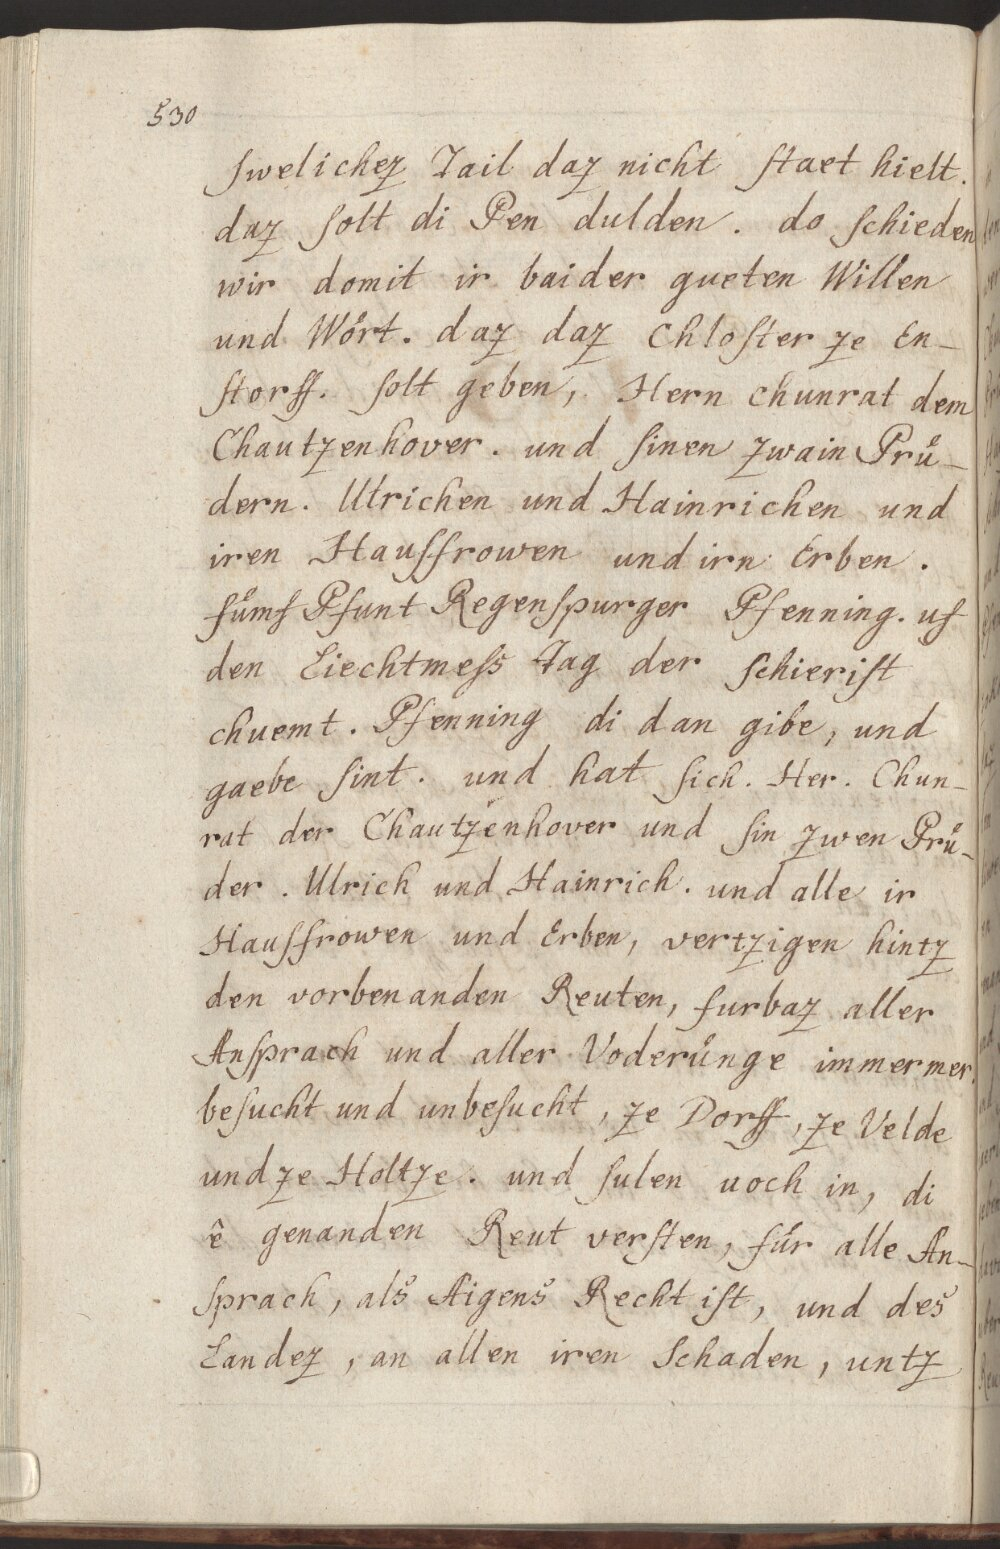 530
ſwelichez Tail daz nicht ſtaet hielt.
daz ſolt di Pen dulden. do ſchieden
wir domit ir baider gueten Willen
und Wŏrt. daz daz Chloſter ze En-
ſtorff. ſolt geben, Hern Chunrat dem
Chautzenhover. und ſinen zwain Prů-
dern. Ulrichen und Hainrichen und
iren Hauſfrowen und irn Erben.
fůmf Pfunt Regenſpurger Pfenning. uf
den Liechtmeſs Tag der ſchieriſt
chuemt. Pfenning di dan gibe, und
gaebe ſint. und hat ſich. Her. Chun-
rat der Chautzenhover und ſin zwen Prů-
der. Ulrich und Hainrich. und alle ir
Hauſfrowen und Erben, vertzigen hintz
den vorbenanden Reuten, furbaz aller
Anſprach und aller Voderůnge immermer.
beſucht und unbeſucht, ze Dorff, ze Velde
und ze Holtze. und ſulen uoch in, di
ê genanden Reut verſten, fůr alle An-
ſprach, als Aigens Recht iſt, und des
Landez, an allen iren Schaden, untz